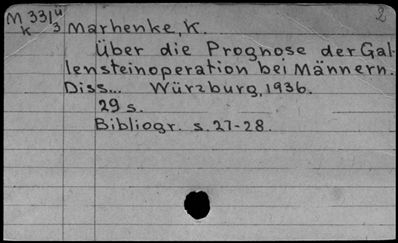 M 331ü 2
k 3 Marhenke, K.
Über die Prognose der Gal-
lensteinoperation bei Männern.
Diss... Würzburg, 1936.
29 s.
Bibliogr. s. 27-28.